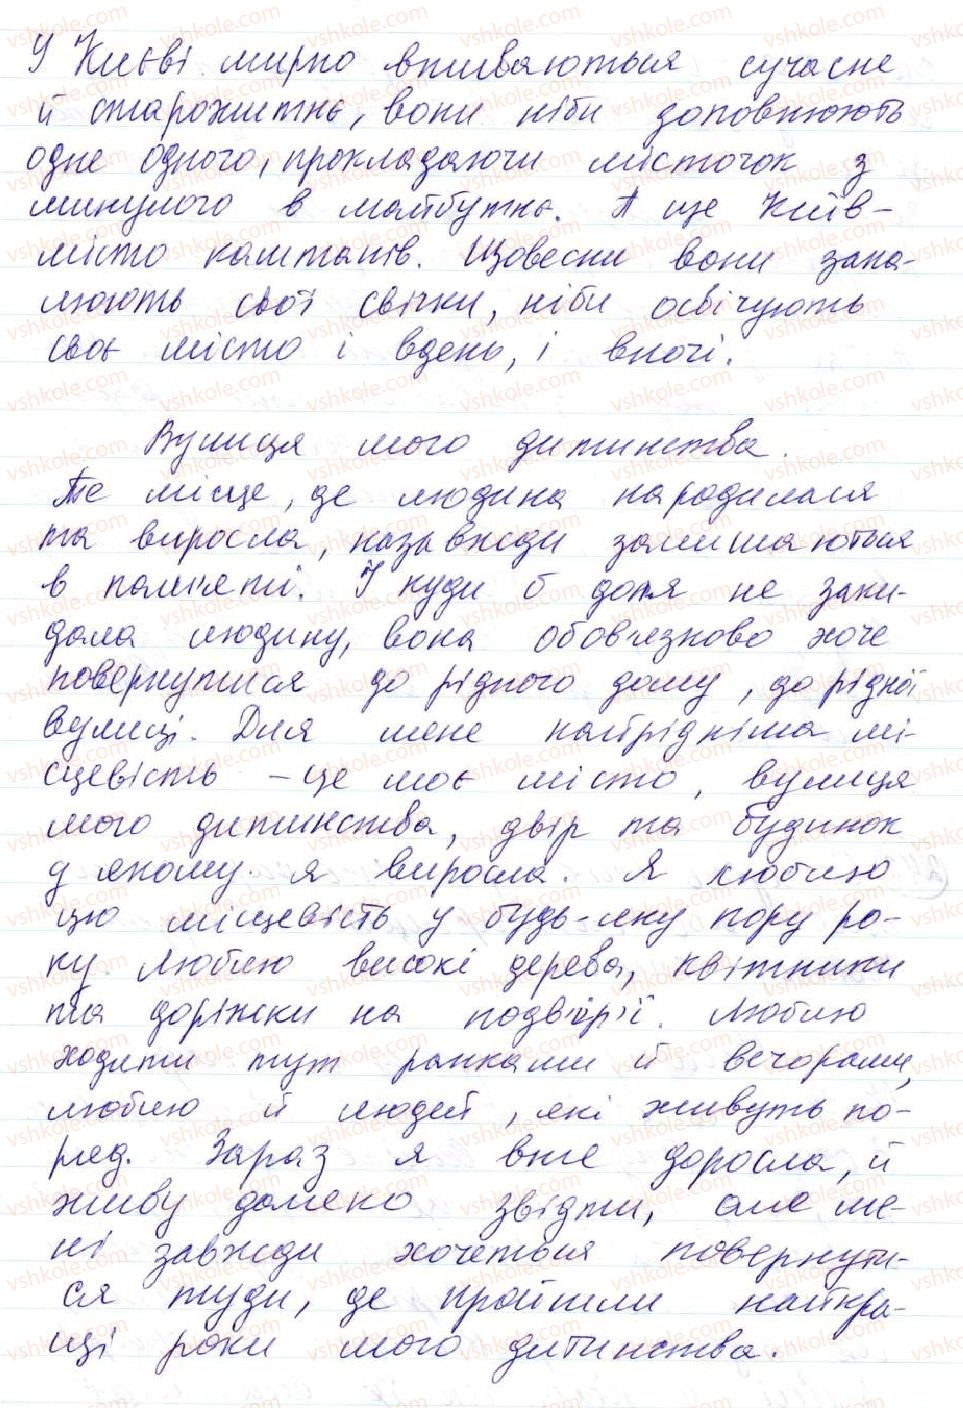 У Києві мирно вживаються сучасне
й старожитнє, вони ніби доповнюють
одне одного, прокладаючи місточок з
минулого в майбутнє. А ще Київ –
місто каштанів. Щовесни вони запа-
люють свої свічки, ніби освічують
своє місто і вдень, і вночі.
Вулиця мого дитинства.
Те місце, де людина народилася
та виросла, назавжди залишаються
в пам'яті. І куди б доля не заки-
дала людину, вона обов'язково хоче
повернутися до рідного дому, до рідної
вулиці. Для мене найрідніша мі-
сцевість – це моє місто, вулиця
мого дитинства, двір та будинок
у якому я виросла. Я люблю
цю місцевість у будь-яку пору ро-
ку. Люблю високі дерева, квітники
та доріжки на подвір'ї. Люблю
ходити тут ранками й вечорами,
люблю й людей, які живуть по-
ряд. Зараз я вже доросла, й
живу далеко звідти, але ме-
ні завжди хочеться повернути-
ся туди, де пройшли найкра-
щі роки мого дитинства.